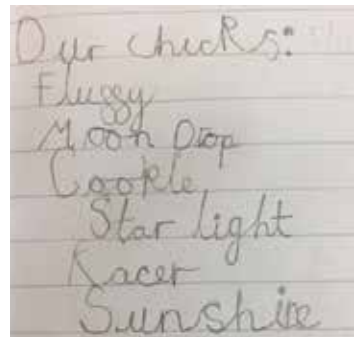 Our chicks:
Fluggy
Moon Drop
Cookle
Star light
Racer
Sunshine